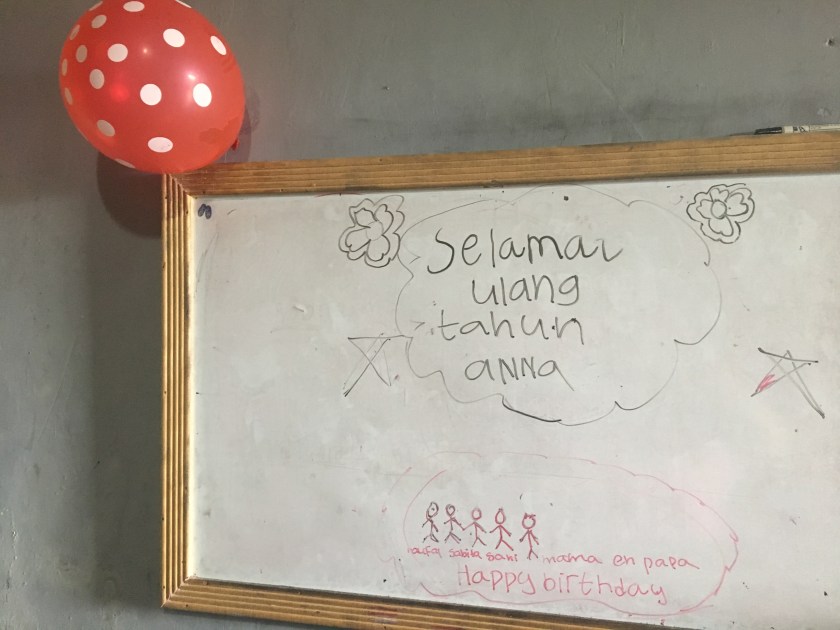 selamat
ulang
tahun
anna
naufa sabita sani mama en papa
Happy birthday